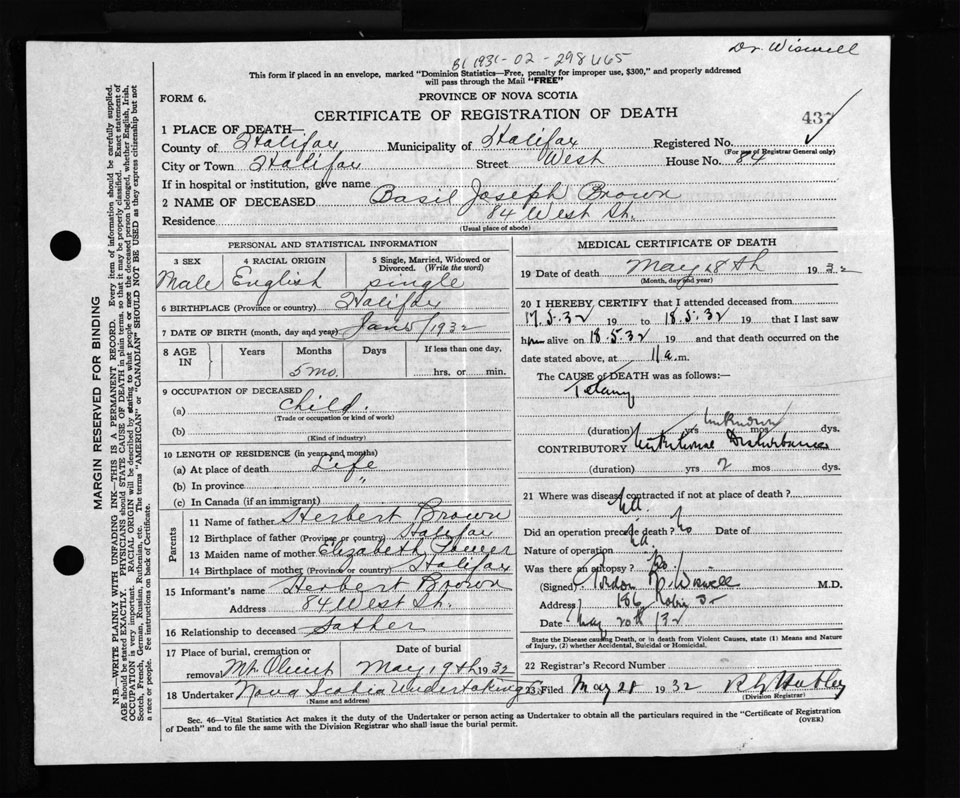 Dr Wiswell
B( 1931-02-298465
This form if placed in an envelope, marked "Dominion Statistics—Free, penalty for improper use, $300," and properly addressed
will pass through the Mail "FREE"
FORM 6.
PROVINCE OF NOVA SCOTIA
CERTIFICATE OF REGISTRATION OF DEATH
437
1 PLACE OF DEATH—
County of Halifax Municipality of Halifax Registered No.
(For use of Registrar General only)
City or Town Halifax Street West House No. 84
If in hospital or institution, give name
2 NAME OF DECEASED Basil Joseph Brown
Residence 84 West St.
(Usual place of abode)
PERSONAL AND STATISTICAL INFORMATION
3 SEX 4 RACIAL ORIGIN 5 Single, Married, Widowed or Divorced. (Write the word)
Male English single
6 BIRTHPLACE (Province or country) Halifax
7 DATE OF BIRTH (month, day and year) Jan 1932
8 AGE IN Years Months Days If less than one day,
5 mo. hrs. or min.
9 OCCUPATION OF DECEASED
(a) Child.
(Trade or occupation or kind of work)
(b)
(Kind of industry)
10 LENGTH OF RESIDENCE (in years and months)
(a) At place of death Life
(b) In province "
(c) In Canada (if an immigrant)
Parents
11 Name of father Herbert Brown
12 Birthplace of father (Province or country) Halifax
13 Maiden name of mother Elizabeth
14 Birthplace of mother (Province or country) Halifax
15 Informant's name Herbert Brown
Address 84 West St.
16 Relationship to deceased Father
17 Place of burial, cremation or removal Mt Olivet Date of burial May 19th 1932
18 Undertaker Nova Scotia Undertaking
(Name and address)
MEDICAL CERTIFICATE OF DEATH
19 Date of death May 18th 1932
(Month, day and year)
20 I HEREBY CERTIFY that I attended deceased from
17.5.32 19 to 18.5.32 19 that I last saw
him alive on 18.5.32 19 and that death occurred on the
date stated above, at 11 a.m.
The CAUSE of DEATH was as follows:—
Tetany
(duration) yrs Unknown mos dys.
CONTRIBUTORY Nutritional Disturbance
(duration) yrs 2 mos dys.
21 Where was disease contracted if not at place of death?
Did an operation precede death? No Date of
Nature of operation
Was there an autopsy? No
(Signed) Gordon B. Wiswell M.D.
Address 186 Robie St
Date May 20th /32
State the Disease causing Death, or in death from Violent Causes, state (1) Means and Nature
of Injury, (2) whether Accidental, Suicidal or Homicidal.
22 Registrar's Record Number
23 Filed May 28 1932
(Division Registrar)
Sec. 46—Vital Statistics Act makes it the duty of the Undertaker or person acting as Undertaker to obtain all the particulars required in the "Certificate of Registration
of Death" and to file the same with the Division Registrar who shall issue the burial permit.
(OVER)
MARGIN RESERVED FOR BINDING
N.B.—WRITE PLAINLY WITH UNFADING INK—THIS IS A PERMANENT RECORD. Every item of information should be carefully supplied.
AGE should be stated EXACTLY. PHYSICIANS should STATE CAUSE OF DEATH in plain terms, so that it may be properly classified. Exact statement of
OCCUPATION is very important. RACIAL ORIGIN will be described by stating to what people or race the deceased person belonged, whether English, Irish,
Scotch, French, German, Russian, Ruthenian, etc. The terms "AMERICAN" or "CANADIAN" SHOULD NOT BE USED as they express citizenship but not
a race or people. See instructions on back of Certificate.